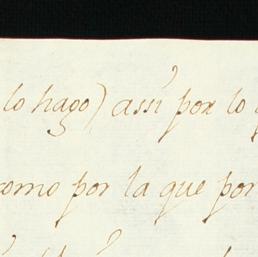 lo hago) assi por lo
como por la que por